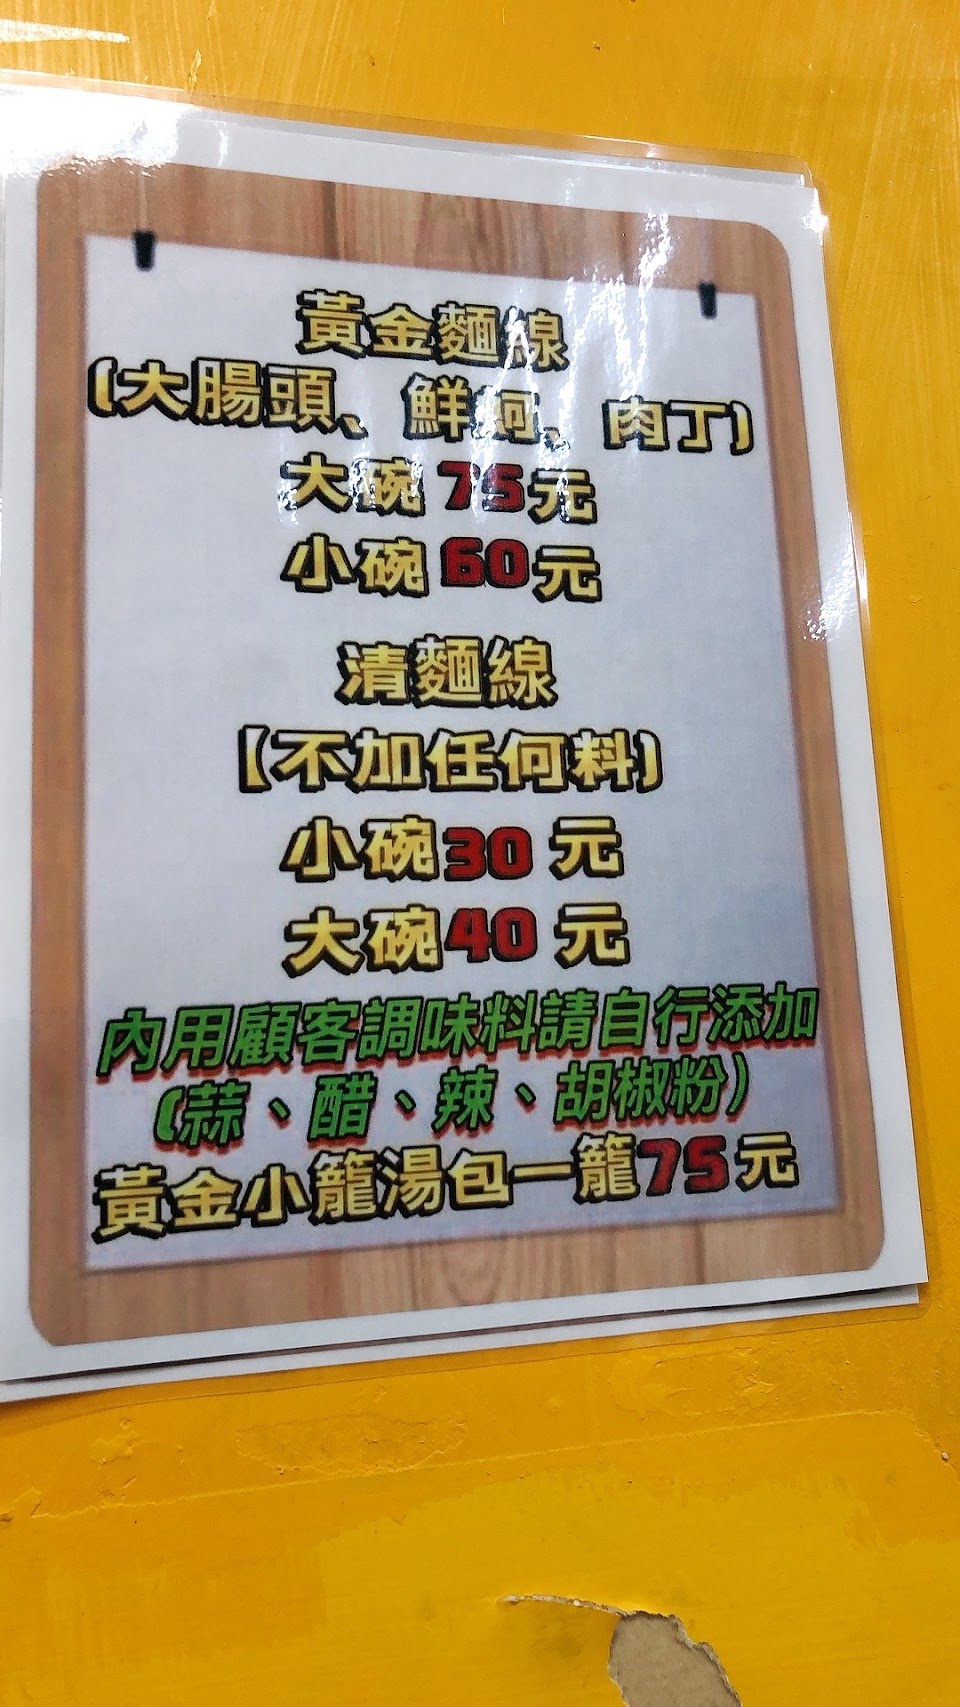 黃金麵線
(大腸頭、鮮蚵、肉丁)
大碗75元
小碗60元
清麵線
【不加任何料)
小碗30元
大碗40元
內用顧客調味料請自行添加
(蒜、醋、辣、胡椒粉)
黃金小籠湯包一籠75元